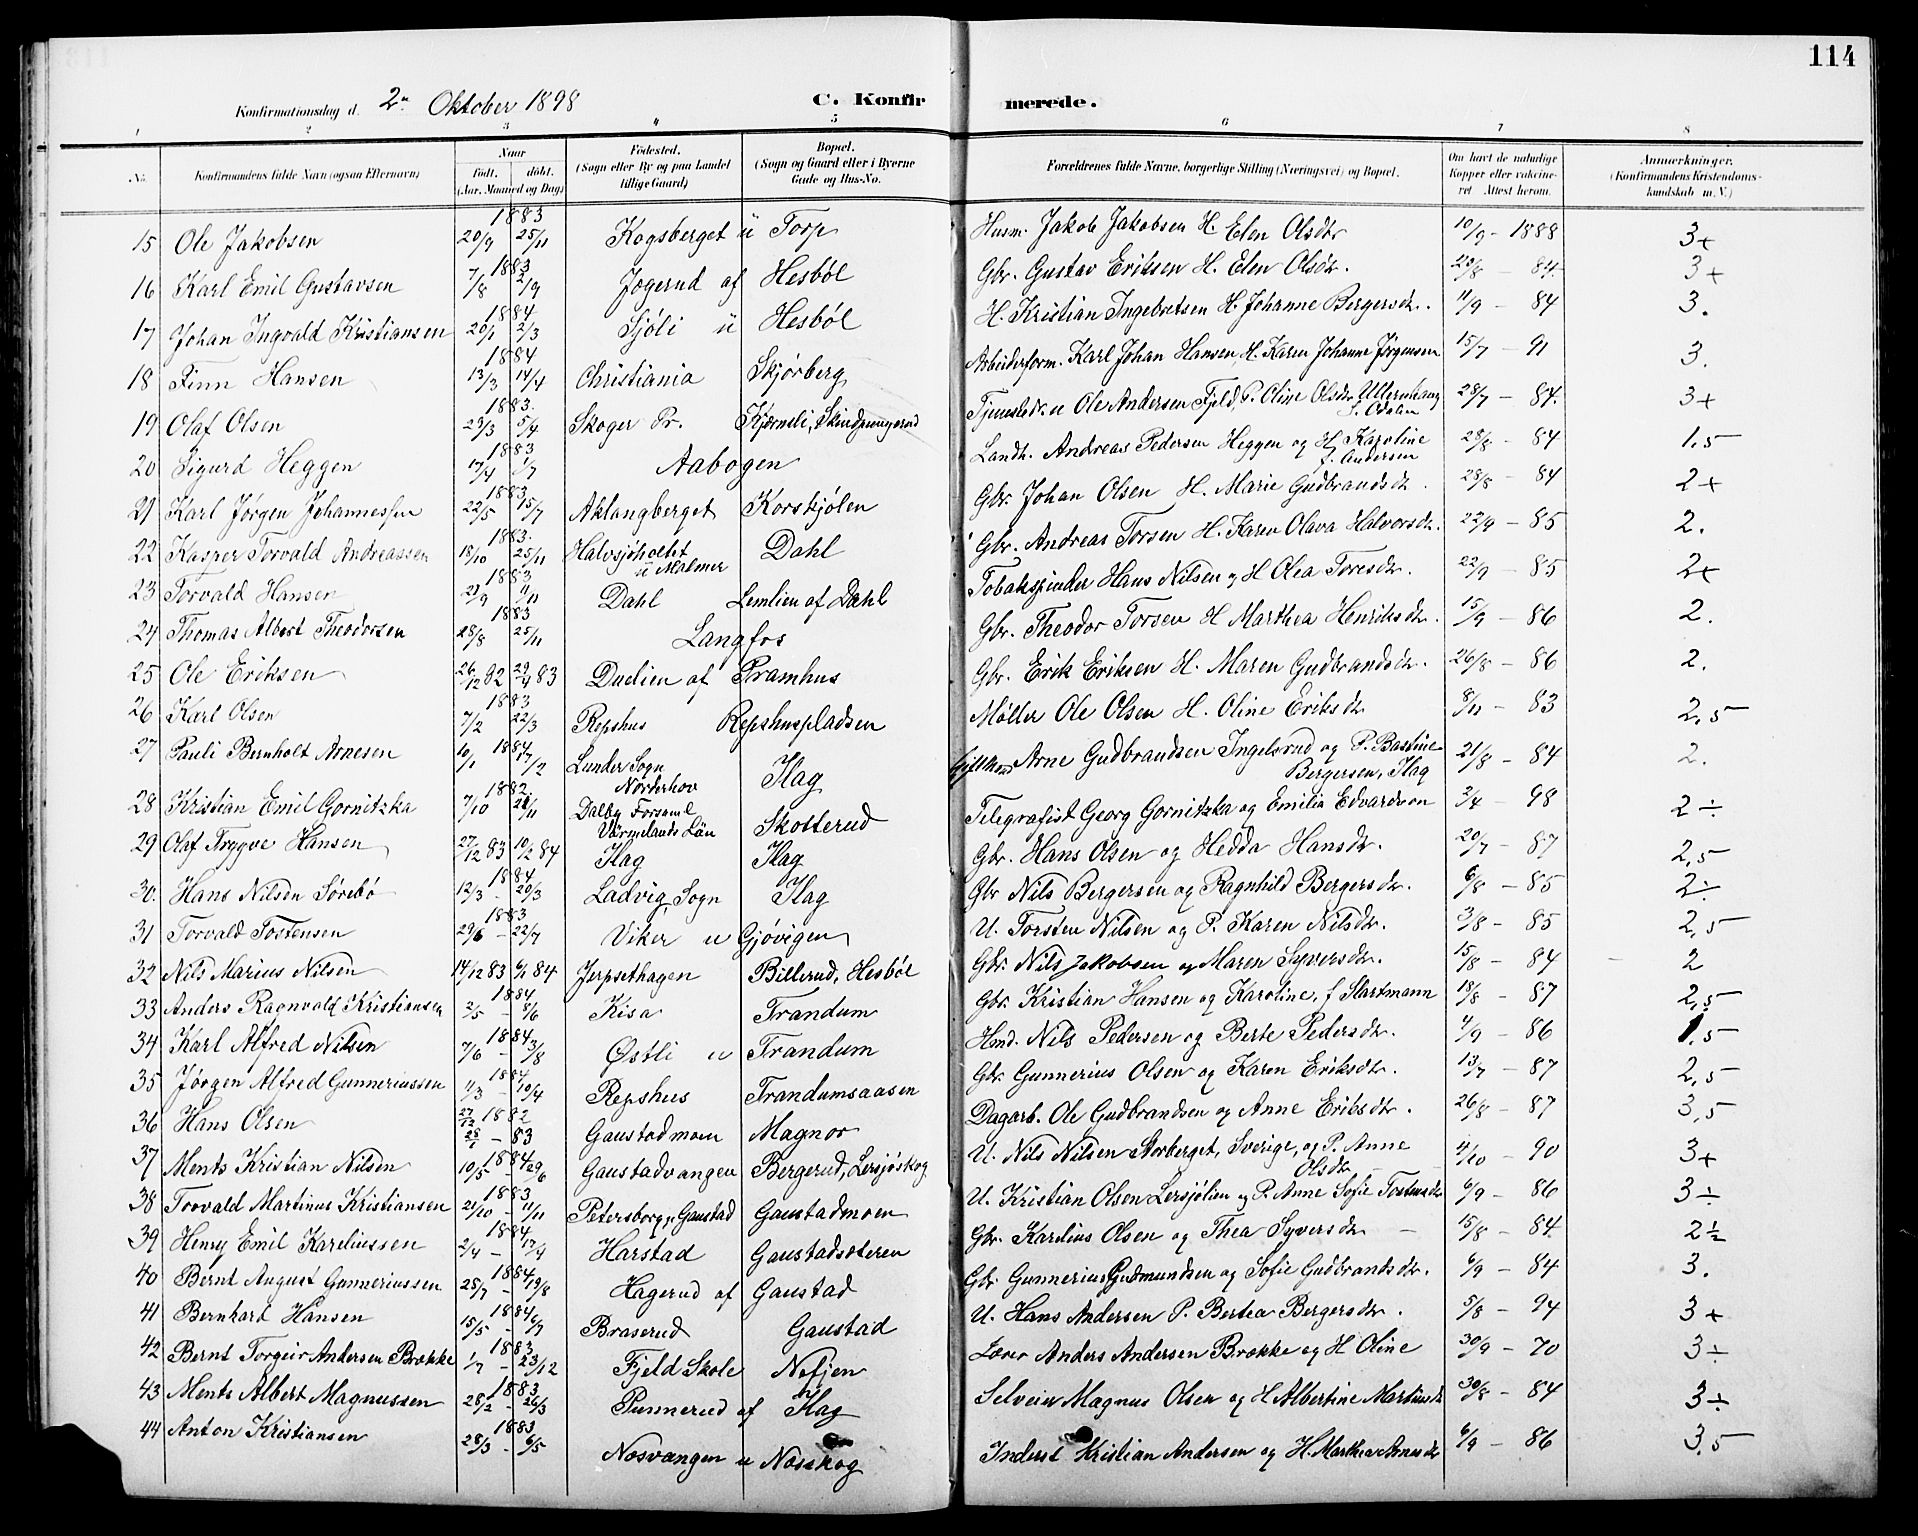 114
Konfirmationsdag d. 2n Oktober 1898 C. Konfirmerede.
1 2 3 4 5 6 7 8
No. Konfirmandens fulde Navn (ogsaa Efternavn) Naar født. døbt. (Aar, Maaned og Dag) Fødested. (Sogn eller By og paa Landet tillige Gaard) Bopæl. (Sogn og Gaard eller i Byerne Gade og Hus-No. Forældrenes fulde Navne, borgerlige Stilling (Næringsvei) og Bopæl. Om havt de naturlige Kopper eller vaccineret. Attest herom. Anmærkninger. (Konfirmandens Kristendomskundskab m. V.)
15 Ole Jakobsen 1883 20/9 25/11 Kogsberget u Torp Husm. Jakob Jakobsen H. Elen Olsdtr 10/9 - 1888 3+
16 Karl Emil Gustavsen 1883 7/8 2/9 Jogerud af Hesbøl Gbr. Gustav Eriksen H. Elen Olsdtr. 23/8 - 84. 3+
17 Johan Ingvald Kristiansen 1884 20/1 2/3 Sjøli u Hesbøl H. Kristian Ingebretsen H. Johanne Bergersdtr. 11/9 - 84 3.
18 Finn Hansen 1884 13/3 14/4 Christiania Skjørberg Arbeiderform. Karl Johan Hansen, H. Karen Johanne Jørgensen 15/7 - 91 3.
19 Olaf Olsen 1883. 23/3 5/4 Skoger Pr. Kjærnsli, Skindpungerud Tjenestedr. u Ole Andersen Fjeld, P. Oline Olsdtr Ullernhaug S. Odalen 28/7 - 84. 3+
20 Sigurd Heggen 1883 17/4 1/7 Aabogen Landh. Andreas Pedersen Heggen og H. Karoline f. Andersen 28/8 - 84 1,5
21 Karl Jørgen Johannessen 1883 22/5 15/7 Aklangberget Korskjølen Gbr. Johan Olsen H. Marie Gudbrandsdtr. 28/8 - 84 2+
22 Kasper Torvald Andreassen 1883. 18/10 25/11 Halvsjøholtet u Malmer Dahl Gbr. Andreas Torsen H. Karen Olava Halvorsdtr. 22/9 - 85 2.
23 Torvald Hansen 1883 21/9 11/11 Dahl Lemlien af Dahl Tobakspinder Hans Nilsen og H Olea Toresdtr. 22/9 - 85 2+
24 Thomas Albert Theodorsen 1883 28/8 25/11 Langfos Gbr. Theodor Torsen H Marthea Henriksdtr. 15/9 - 86 2.
25 Ole Eriksen 26/12 82 29/4 83 Duelien af Pramhus Gbr. Erik Eriksen H. Maren Gudbrandsdtr. 26/8 - 86 2.
26 Karl Olsen 1883 7/2 22/3 Repshus Repshuspladsen Møller Ole Olsen H. Oline Eriksdtr 8/11 - 83 2,5
27 Pauli Bernholt Arnesen 1884 10/1 17/2 Lunder Sogn Nørderhov Hag Arne Gudbrandsen Ingelsrud og P. Bastine Bergersen, Hag 21/8 - 84 2.
28 Kristian Emil Gornitzka 1882 7/10 21/11 Dalby Forsaml Värmelands Län Skotterud Telegrafist Georg Gornitzka og Emilia Edvardson 2/4 - 98 2÷
29 Olaf Trygve Hansen 27/12 83 10/2 84 Hag Hag Gbr. Hans Olsen og Hedda Hansdtr. 20/7 - 87 2,5
30. Hans Nilsen Sørebø 1884 12/3 - 20/3 Ladvig Sogn Hag Gbr Nils Bergersen og Ragnhild Bergersdtr. 6/8 - 85 2÷
31 Torvald Tostensen 1883 29/6 - 22/7 Viker u Gjøvigen U. Torsten Nilsen og P. Karen Nilsdtr. 3/8 - 85 2,5
32 Nils Marius Nilsen 14/12 83 6/1 84 Jerpsethagen Billerud, Hesbøl Gbr. Nils Jakobsen og Maren Syversdtr. 15/8 - 84 2
33 Anders Ragnvald Kristiansen 1884 2/5 - 8/6 Kisa Trandum Gbr. Kristian Hansen og Karoline, f Slartmann 18/8 - 87 2,5
34 Karl Alfred Nilsen 1884 7/6 - 3/8 Østli u Trandum Hmd. Nils Pedersen og Berte Pedersdtr. 4/9 - 86 1,5
35 Jørgen Alfred Gunneriussen 1884 4/3 - 19/4 Repshus Trandumsaasen Gbr. Gunnerius Olsen og Karen Eriksdtr. 13/7 - 87 2,5
36 Hans Olsen 27/12 1882 28/1 - 83 Gaustadmoen Magnor Dagarb. Ole Gudbrandsen og Anne Eriksdtr. 26/8 - 87 3,5
37 Ments Kristian Nilsen 1884 10/5 - 29/6 Gaustadvangen Bergerud, Lersjøskog U. Nils Nilsen Storberget, Sverige, og P. Anne Olsdtr 4/10 - 90 3+
38 Torvald Martinus Kristiansen 1883 21/10 - 11/11 Petersborg, Gaustad Gaustadmoen U. Kristian Olsen Lersjølien og P. Anne Sofie Tostensdtr 6/9 - 86 3÷
39 Henry Emil Kareliussen 1884 2/4 - 17/4 Harstad Gaustadsæteren Gbr. Karelius Olsen og Thea Syversdtr 15/8 - 84. 2½
40 Bernt August Gunneriussen 1884 25/7 - 19/8 Hagerud af Gaustad Gbr. Gunnerius Gudmundsen og Sofie Gudbrandsdtr. 6/9 - 84 3.
41 Bernhart Hansen 1884 15/5 - 6/7 Braserud Gaustad U. Hans Andersen P. Bertea Bergersdtr. 5/8 - 94 3+
42 Bernt Torgeir Andersen Brække 1883 1/7 - 23/12 Fjeld Skole Nefjen Lærer Anders Andersen Brække og H Oline 30/9 - 70 3÷
43 Ments Albert Magnussen 1883 28/2 - 26/3 Punnerud af Hag Selveier Magnus Olsen og H Albertine Martinsdtr 30/8 - 84 3÷
44 Anton Kristiansen 1883 28/3 - 6/5 Nosvangen u Nosskog Inderst Kristian Andersen og H. Marthea Arnesdtr 6/9 - 86 3,5